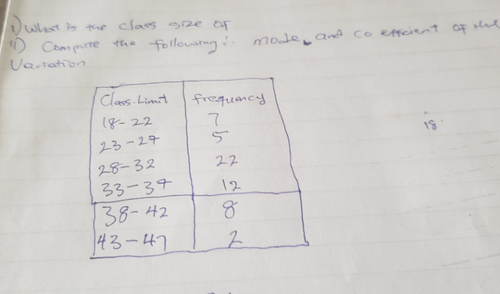 1) What is the class size of
11) Compute the following:- mode, and co efficient of the
Variation
Class.Limit frequency
18-22 7
23-27 5
28-32 22
33-37 12
38-42 8
43-47 2
is